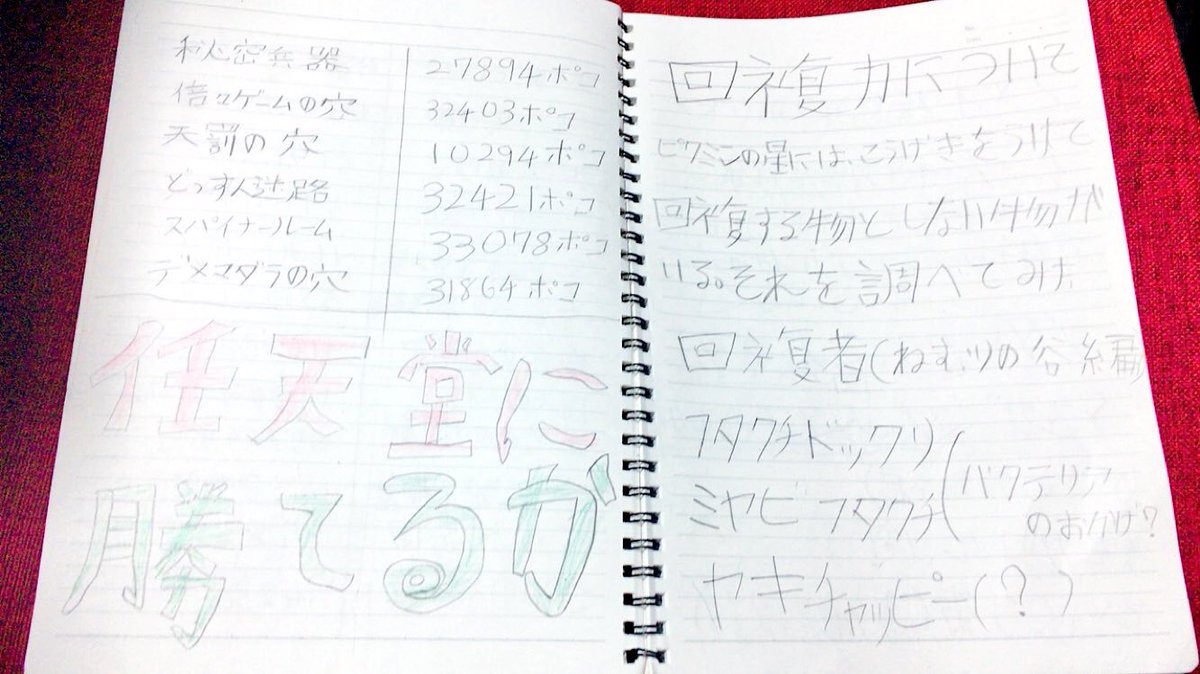 秘密兵器 27894ポコ
倍々ゲームの穴 32403ポコ
天罰の穴 10294ポコ
どっすん迷路 32421ポコ
スパイナールーム 33078ポコ
デメマダラの穴 31864ポコ
任天堂に
勝てるか
回復力について
ピクミンの星には、こうげきをうけて
回復する物としない物が
いる。それを調べてみた
回復者(ねむりの谷編)
フタクチドックリ
ミヤビフタクチ
(バクテリア
のおかげ?
ヤキチャッピー(?)